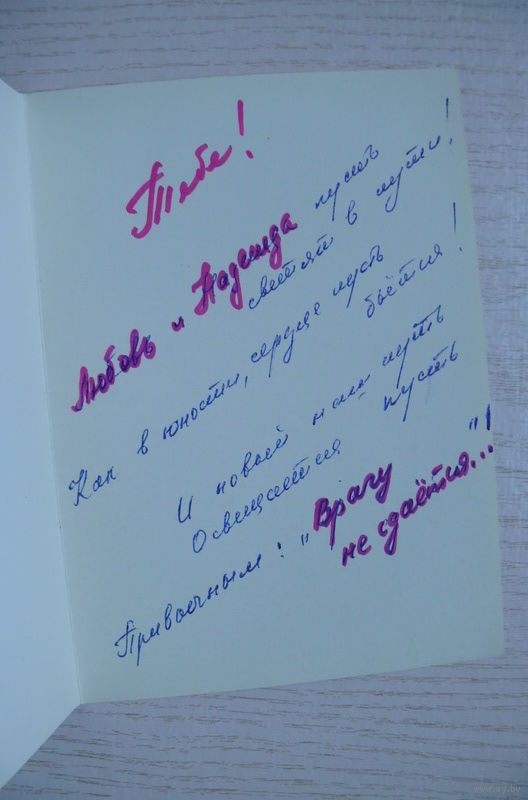 Тебе!
Любовь и Надежда пусть
светят в пути!
Как в юности, сердце пусть
бьётся!
И новый наш путь
Освещается пусть
Привычным: „Врагу
не сдаётся..."!